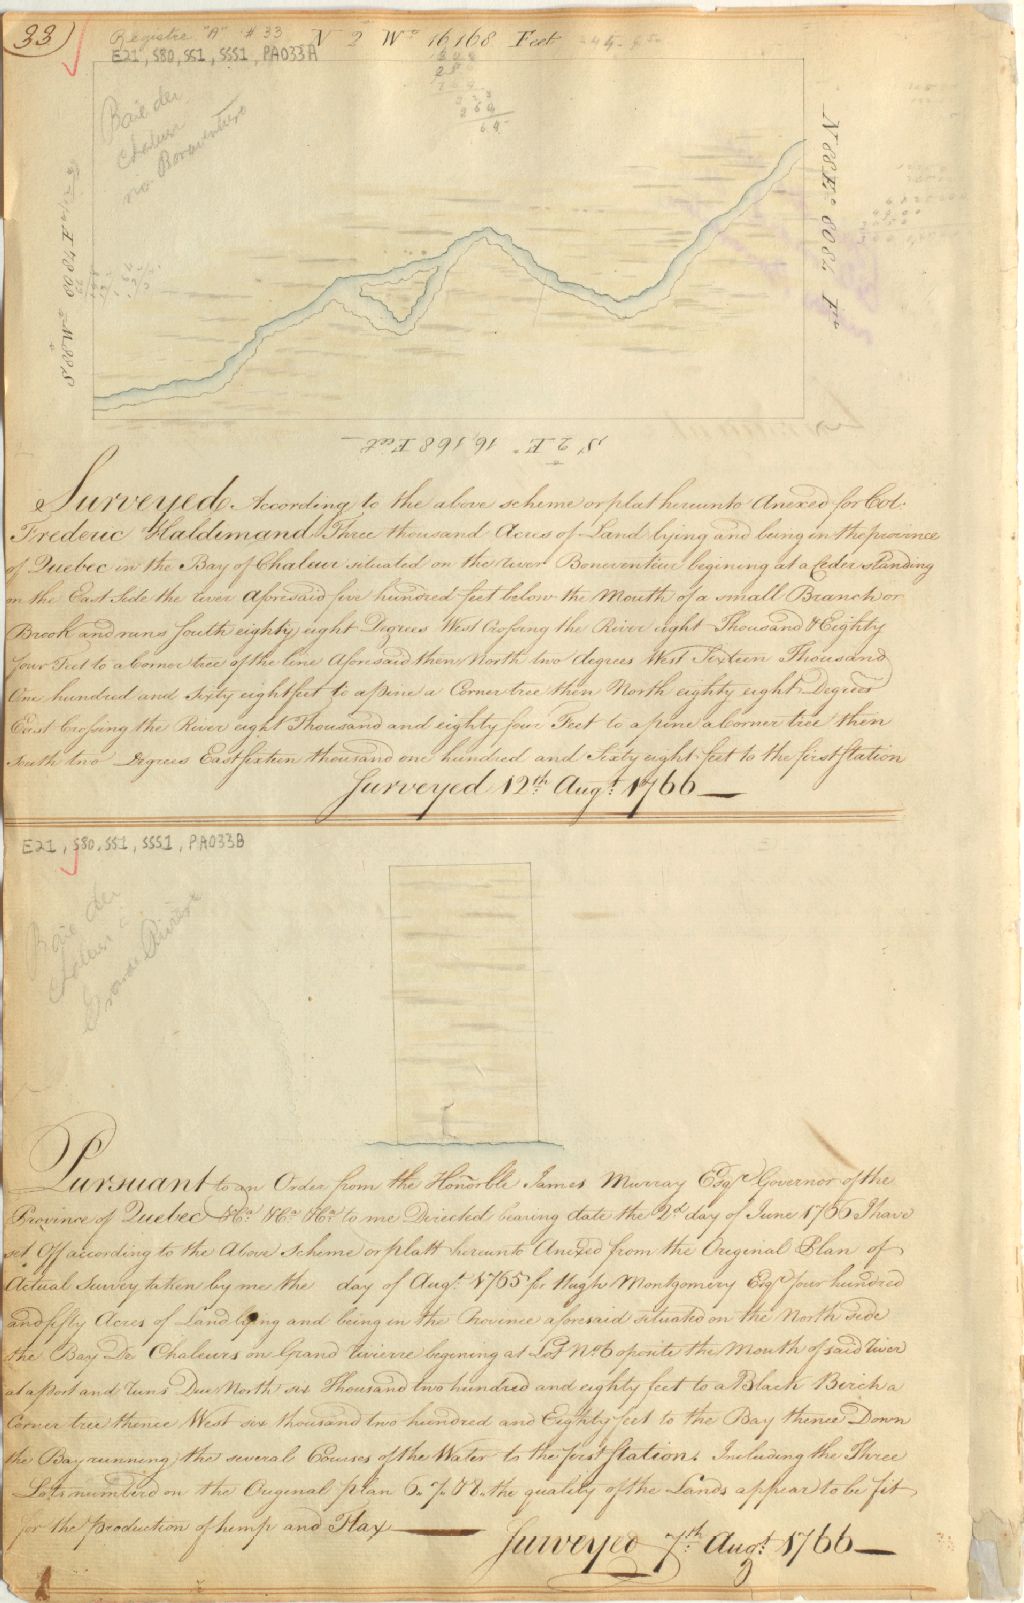 33)
Registre "A" # 33
N 2 Wt 16168 Feet
E21, S80, SS1, SSS1, PA033A
Baie des
Chaleurs
Bonaventure
N 88 Et 8084 Ft
S 88 Wt
S 2 Et 16,168 Feet
Surveyed According to the above scheme or plat hereunto Anexed for Col.
Frederic Haldimand Three thousand Acres of Land lying and being in the province
of Quebec in the Bay of Chaleur situated on the river Boneventeur begining at a Ceder standing
on the East Side the river aforesaid five hundred feet below the Mouth of a small Branch or
Brook and runs South eighty eight Degrees West Crossing the River eight Thousand & Eighty
four Feet to a Corner tree of the line Aforesaid then North two degrees West Sixteen Thousand
One hundred and Sixty eight feet to a pine a Corner tree then North eighty eight Degrees
East Crossing the River eight Thousand and eighty four Feet to a pine a Corner tree then
South two Degrees East sixteen thousand one hundred and Sixty eight feet to the first Station
Surveyed 12th Augt 1766
E21, S80, SS1, SSS1, PA033B
Baie des
Chaleurs à
Grande Rivière
Pursuant to an Order from the Honorble James Murray Esqr Governor of the
Province of Quebec &ca &ca &ca to me Directed bearing date the 2d day of June 1766 I have
set Off according to the Above Scheme or platt hereunto Anexed from the Original Plan of
Actual Survey taken by me the day of Augt 1765 for Hugh Montgomery Esqr four hundred
and fifty Acres of Land lying and being in the Province aforesaid situated on the North side
the Bay De Chaleurs on Grand Rivierre begining at Lot No 6 oposite the Mouth of said river
at a post and runs Due North six Thousand two hundred and eighty feet to a Black Birch a
Corner tree thence West six thousand two hundred and Eighty feet to the Bay thence Down
the Bay running the several Courses of the Water to the first Station. Including the Three
Lots numberd on the Original plan 6. 7. & 8. the quality of the Lands appear to be fit
for the production of hemp and Flax
Surveyed 7th Augt 1766